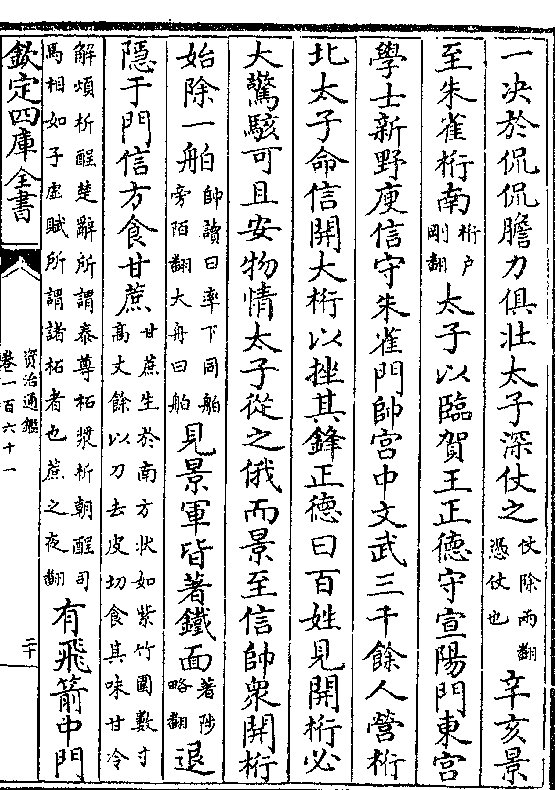 一决於侃侃膽力俱壯太子深仗之仗除兩翻憑仗也辛亥景
至朱雀桁南桁户剛翻太子以臨賀王正德守宣陽門東宫
學士新野庾信守朱雀門帥宫中文武三千餘人營桁
北太子命信開大桁以挫其鋒正德曰百姓見開桁必
大驚駭可且安物情太子從之俄而景至信帥衆開桁
始除一舶帥讀曰率下同舶旁陌翻大舟曰舶見景軍皆著鐵面著陟略翻退
隱于門信方食甘蔗甘蔗生於南方状如紫竹圍數寸高丈餘以刀去皮切食其味甘冷
解煩析酲楚辭所謂泰尊柘漿析朝酲司馬相如子虚賦所謂諸柘者也蔗之夜翻有飛箭中門
欽定四庫全書
資治通鑑
卷一百六十一
二十